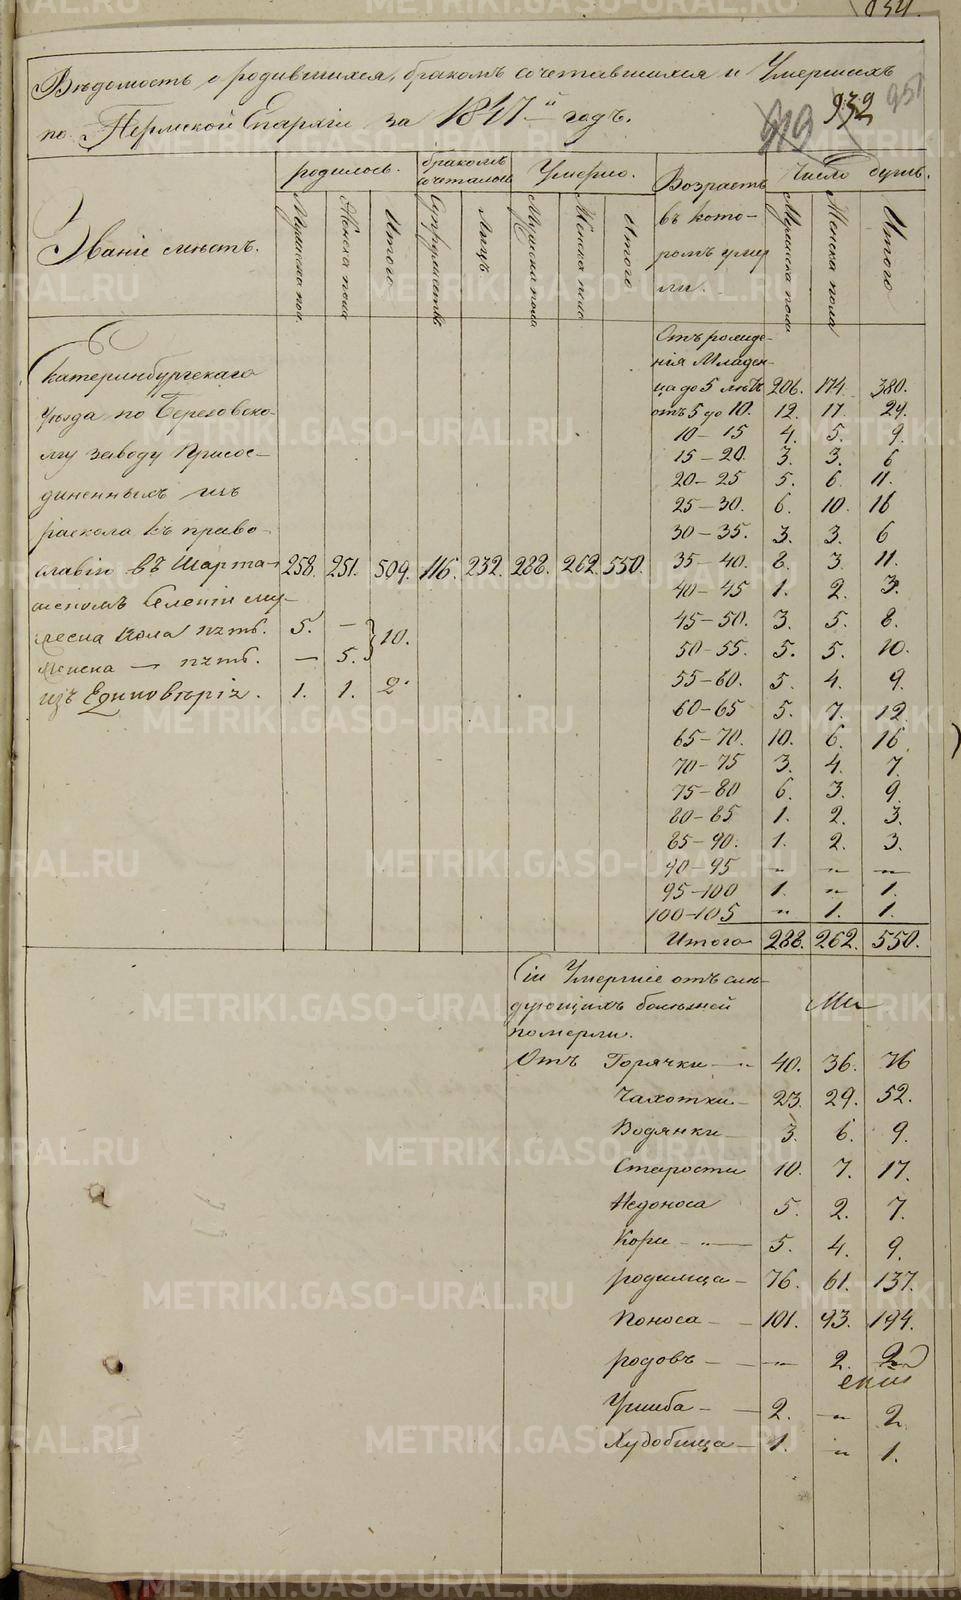 Вѣдомость о родившихся, бракомъ сочетавшихся и Умершихъ
по Пермской Епархіи за 1847й годъ.
919 932 951
Званіе мѣстъ.
родилось.
Мужска пол.
Женска пола
Итого
бракомъ сочеталось
Супружествъ
Лицъ
Умерло.
Мужска пола
Женска пола
Итого
Возрастъ
въ кото-
ромъ умер
ли.
Число душъ.
Мужска пола
Женска пола
Итого
Екатеринбургскаго
уѣзда по Березовско-
му заводу присое-
диненныхъ изъ
раскола къ право-
славію въ Шарта- 258. 251. 509. 116. 232. 288. 262. 550.
шскомъ Селеніи му-
жеска пола 5. — 10.
Женска — — 5.
изъ Единовѣрія. 1. 1. 2.
Отъ рожде-
нія Младен-
ца до 5 лѣтъ 206. 174. 380.
отъ 5 до 10. 12. 17. 29.
10-15 4. 5. 9.
15-20. 3. 3. 6
20-25 5. 6. 11.
25-30. 6. 10. 16
30-35. 3. 3. 6
35-40. 8. 3. 11.
40-45 1. 2. 3.
45-50. 3. 5. 8.
50-55. 5. 5. 10.
55-60. 5. 4. 9.
60-65 5. 7. 12.
65-70. 10. 6. 16
70-75 3. 4. 7.
75-80 6. 3. 9.
80-85 1. 2. 3.
85-90. 1. 2. 3.
90-95 „ „ „
95-100 1. „ 1.
100-105 „ 1. 1.
Итого 288. 262. 550.
Сіи Умершіе отъ слѣ-
дующихъ болѣзней
померли.
Отъ Горячки — 40. 36. 76
Чахотки — 23. 29. 52.
Водянки — 3. 6. 9.
Старости 10. 7. 17.
Недоноса 5. 2. 7.
Кори — 5. 4. 9.
родимца — 76. 61. 137.
Поноса — 101. 93. 194.
родовъ — — 2. 2
Ушиба — 2. „ 2
Худобища — 1. „ 1.
METRIKI.GASO-URAL.RU